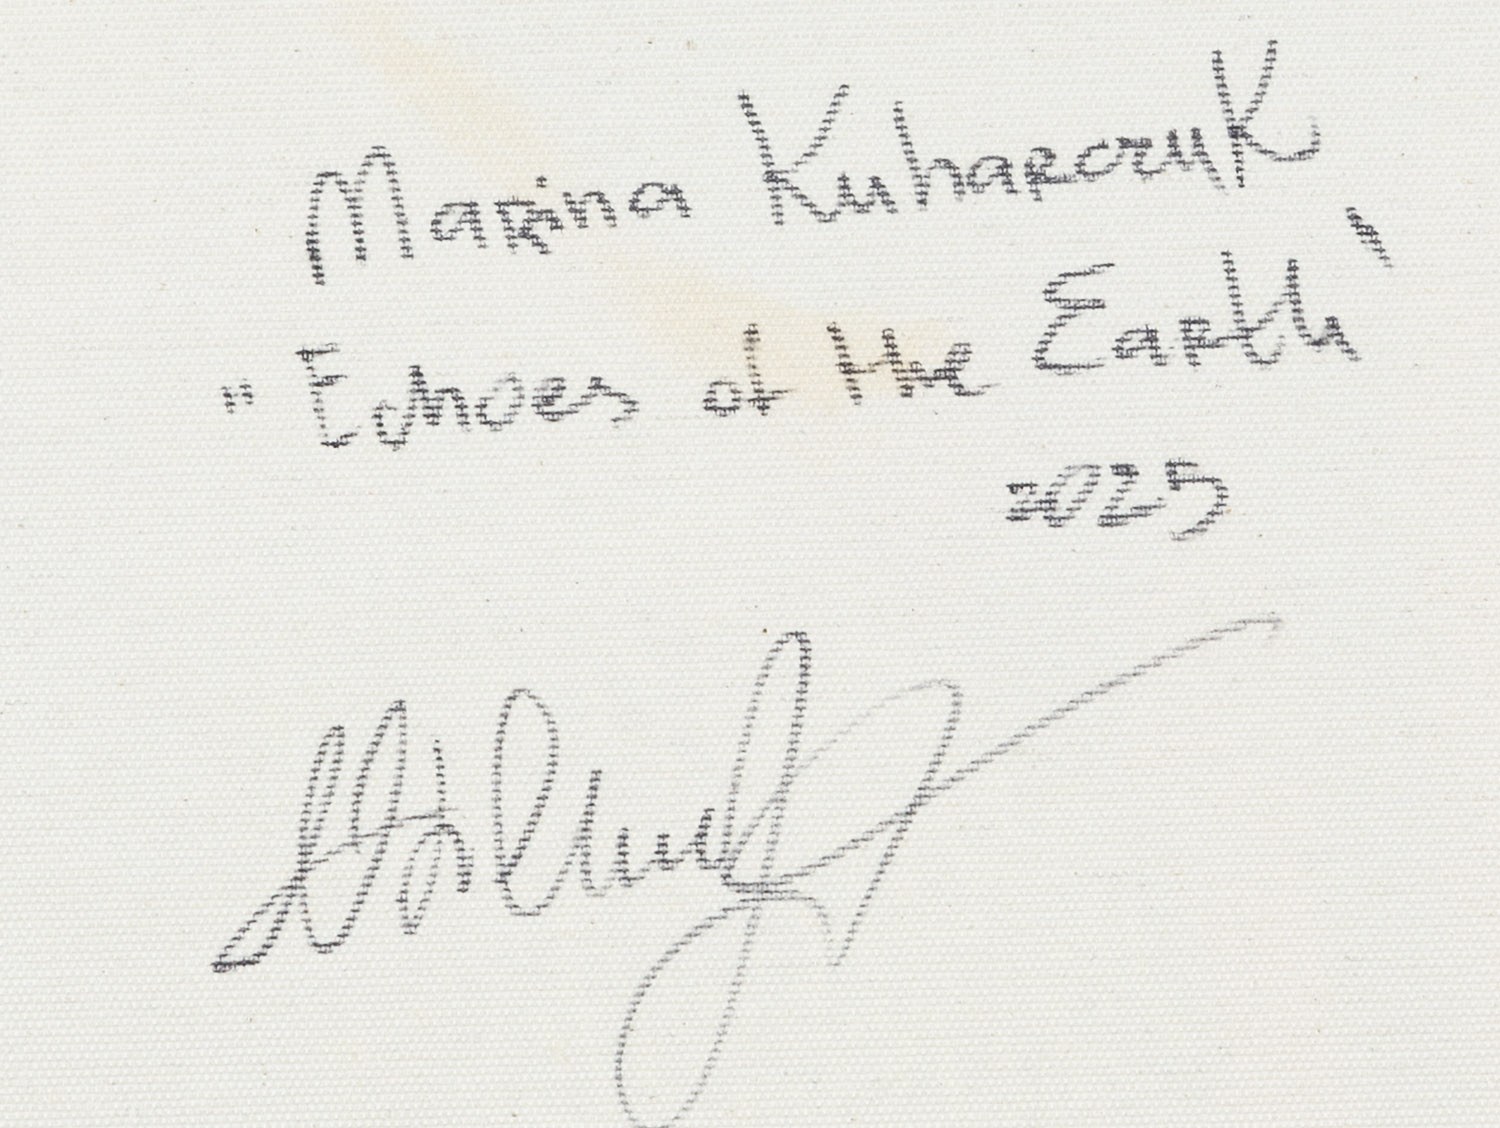 Marina Kuharczyk
"Echoes of the Earth'
2025